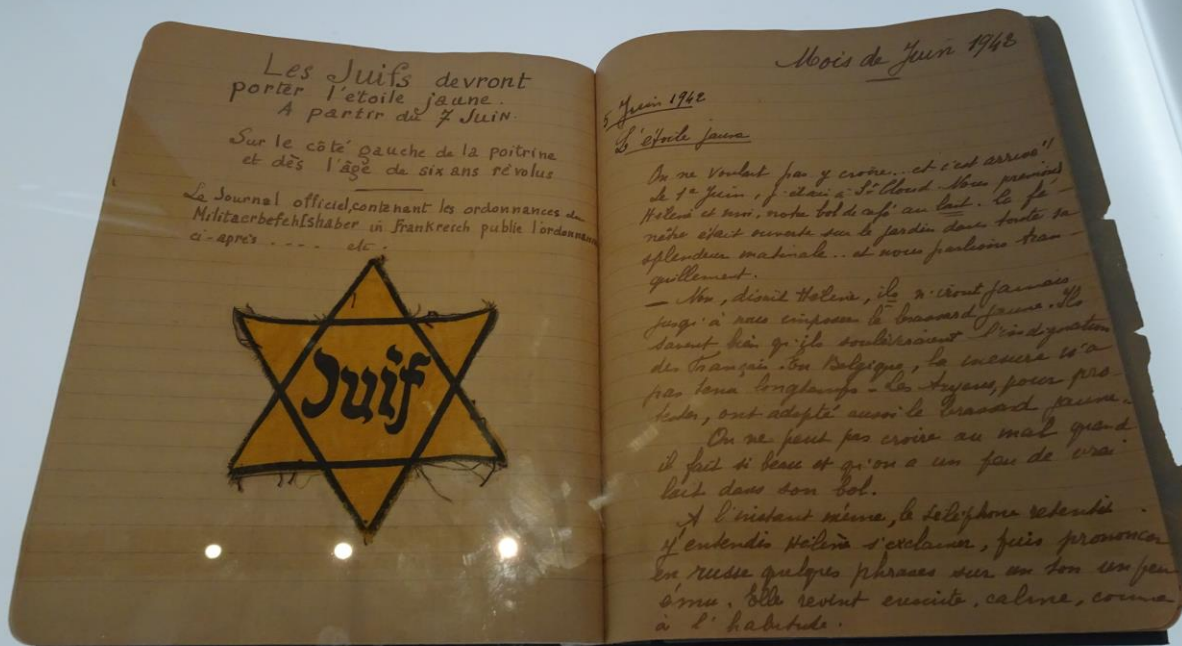 Les Juifs devront
porter l'étoile jaune.
A partir du 7 Juin.
Sur le côté gauche de la poitrine
et dès l'âge de six ans révolus
Le Journal officiel, contenant les ordonnances du
Militaerbefehlshaber in Frankreich publie l'ordonnance
ci-après .... etc.
Juif
Mois de Juin 1942
5 Juin 1942
L'étoile jaune
On ne voulait pas y croire... et c'est arrivé !!
Le 1er Juin, j'étais à St Cloud. Nous prenions
Hélène et moi, notre bol de café au lait. La fe-
nêtre était ouverte sur le jardin dans toute sa
splendeur matinale.. et nous parlions tran-
quillement.
— Non, disait Hélène, ils n'iront jamais
jusqu'à nous imposer le brassard jaune. Ils
savent bien qu'ils soulèveraient l'indignation
des Français. En Belgique, la mesure n'a
pas tenu longtemps - Les Aryens, pour pro-
tester, ont adopté aussi le brassard jaune.
On ne peut pas croire au mal quand
il fait si beau et qu'on a un peu de vrai
lait dans son bol.
A l'instant même, le téléphone retentit.
J'entendis Hélène s'exclamer, puis prononcer
en russe quelques phrases sur un ton un peu
ému. Elle revint ensuite, calme, comme
à l'habitude.